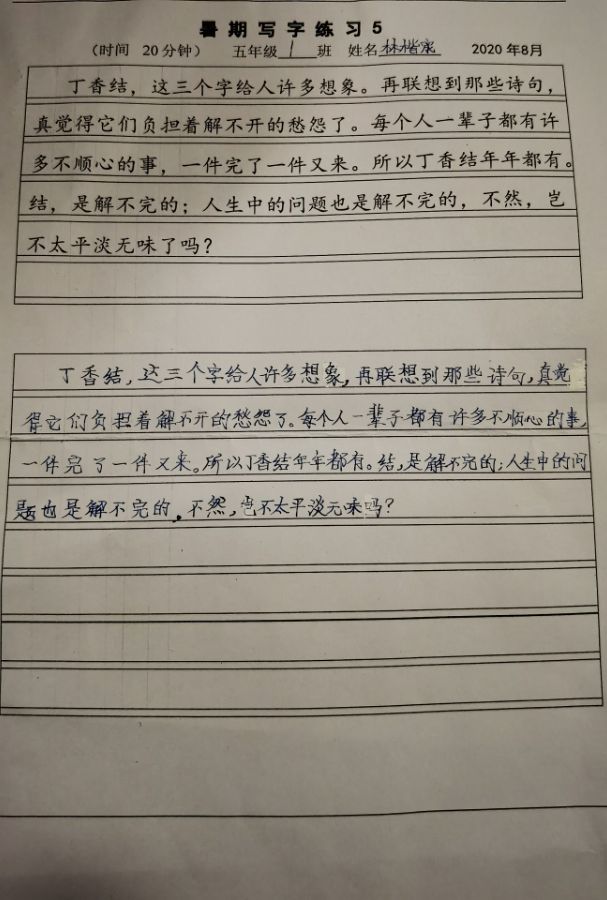 暑期写字练习5
（时间 20分钟） 五年级 1 班 姓名 林楷宸 2020年8月
丁香结，这三个字给人许多想象。再联想到那些诗句，
真觉得它们负担着解不开的愁怨了。每个人一辈子都有许
多不顺心的事，一件完了一件又来。所以丁香结年年都有。
结，是解不完的；人生中的问题也是解不完的，不然，岂
不太平淡无味了吗？
丁香结，这三个字给人许多想象，再联想到那些诗句，真觉
得它们负担着解不开的愁怨了。每个人一辈子都有许多不顺心的事，
一件完了一件又来。所以丁香结年年都有。结，是解不完的；人生中的问
题也是解不完的。不然，岂不太平淡无味吗？